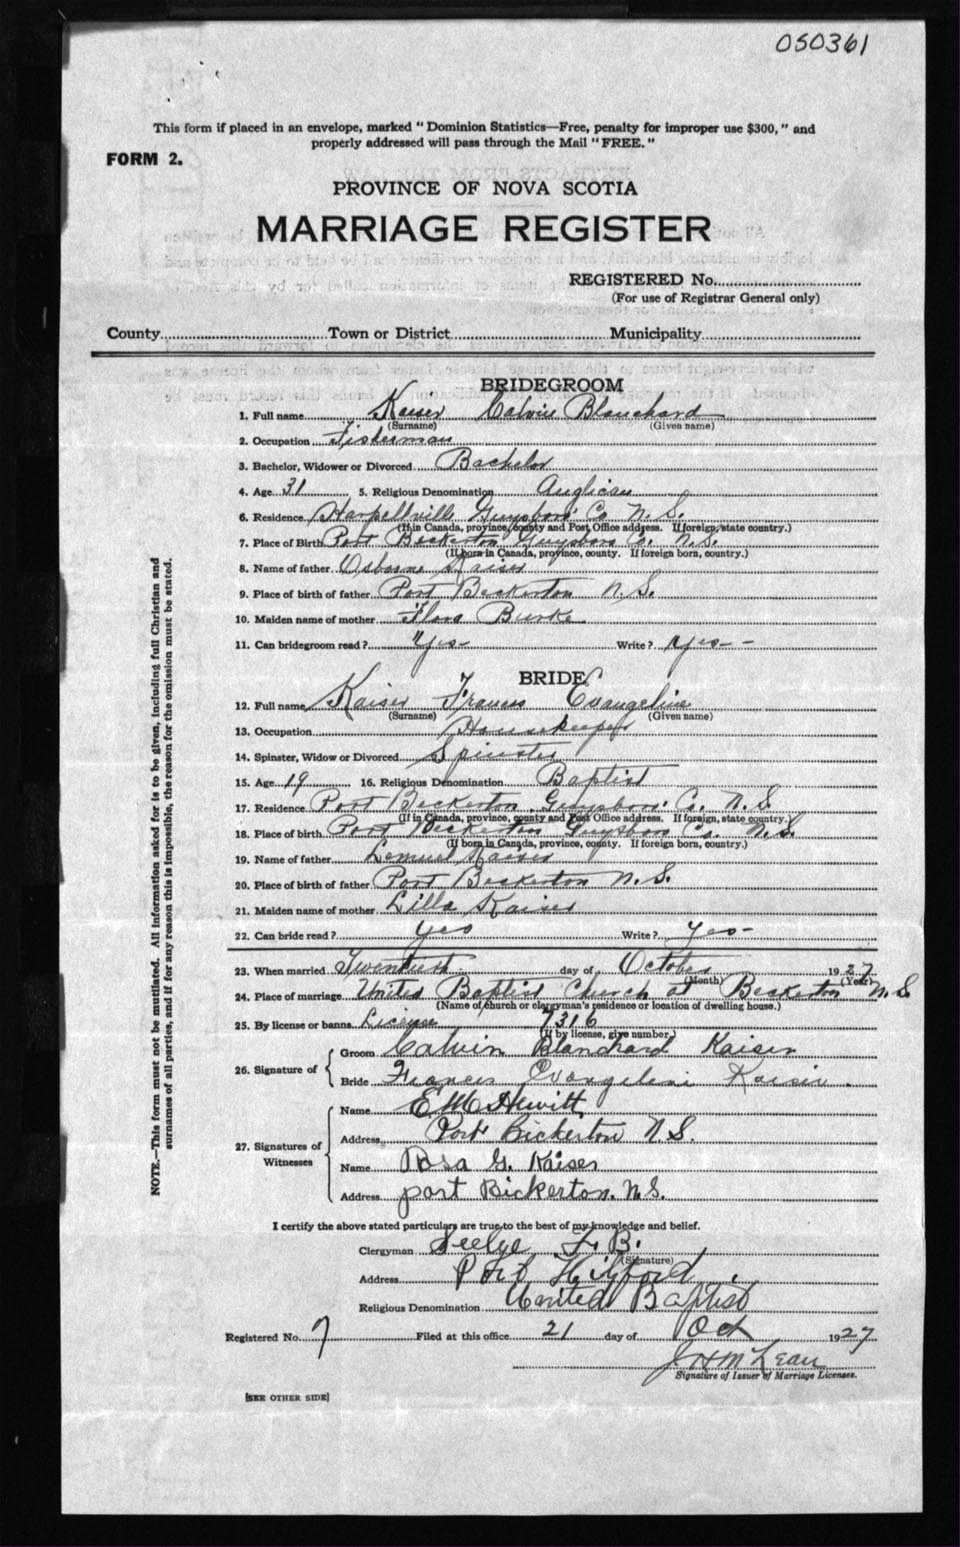 050361
This form if placed in an envelope, marked "Dominion Statistics—Free, penalty for improper use $300," and
properly addressed will pass through the Mail "FREE."
FORM 2.
PROVINCE OF NOVA SCOTIA
MARRIAGE REGISTER
REGISTERED No.
(For use of Registrar General only)
County Town or District Municipality
BRIDEGROOM
1. Full name Kaiser Calvin Blanchard
(Surname) (Given name)
2. Occupation Fisherman
3. Bachelor, Widower or Divorced Bachelor
4. Age 31 5. Religious Denomination Anglican
6. Residence Harpellville Guysboro Co N.S.
(If in Canada, province, county and Post Office address. If foreign, state country.)
7. Place of Birth Port Beckerton Guysboro Co. N.S.
(If born in Canada, province, county. If foreign born, country.)
8. Name of father Osborne Kaiser
9. Place of birth of father Port Beckerton N.S.
10. Maiden name of mother Flora Burke
11. Can bridegroom read? Yes- Write? Yes-
BRIDE
12. Full name Kaiser Frances Evangeline
(Surname) (Given name)
13. Occupation Housekeeper
14. Spinster, Widow or Divorced Spinster
15. Age 19 16. Religious Denomination Baptist
17. Residence Port Beckerton Guysboro Co. N.S.
(If in Canada, province, county and Post Office address. If foreign, state country.)
18. Place of birth Port Beckerton Guysboro Co. N.S.
(If born in Canada, province, county. If foreign born, country.)
19. Name of father Lemuel Kaiser
20. Place of birth of father Port Beckerton N.S.
21. Maiden name of mother Lilla Kaiser
22. Can bride read? Yes Write? Yes-
23. When married Twentieth day of October 1927
(Month) (Year)
24. Place of marriage United Baptist Church at Beckerton N.S.
(Name of church or clergyman's residence or location of dwelling house.)
25. By license or banns License 7316
(If by license, give number.)
26. Signature of Groom Calvin Blanchard Kaiser
Bride Frances Evangeline Kaiser
27. Signatures of Witnesses
Name E M Hewitt
Address Port Bickerton N.S.
Name Rosa G. Kaiser
Address port Bickerton. N.S.
I certify the above stated particulars are true to the best of my knowledge and belief.
Clergyman Seelye F. B.
(Signature)
Address Port Hilford
Religious Denomination United Baptist
Registered No. 7 Filed at this office 21 day of Oct 1927
J H McLean
Signature of Issuer of Marriage Licenses.
[SEE OTHER SIDE]
NOTE.—This form must not be mutilated. All information asked for is to be given, including full Christian and
surnames of all parties, and if for any reason this is impossible, the reason for the omission must be stated.